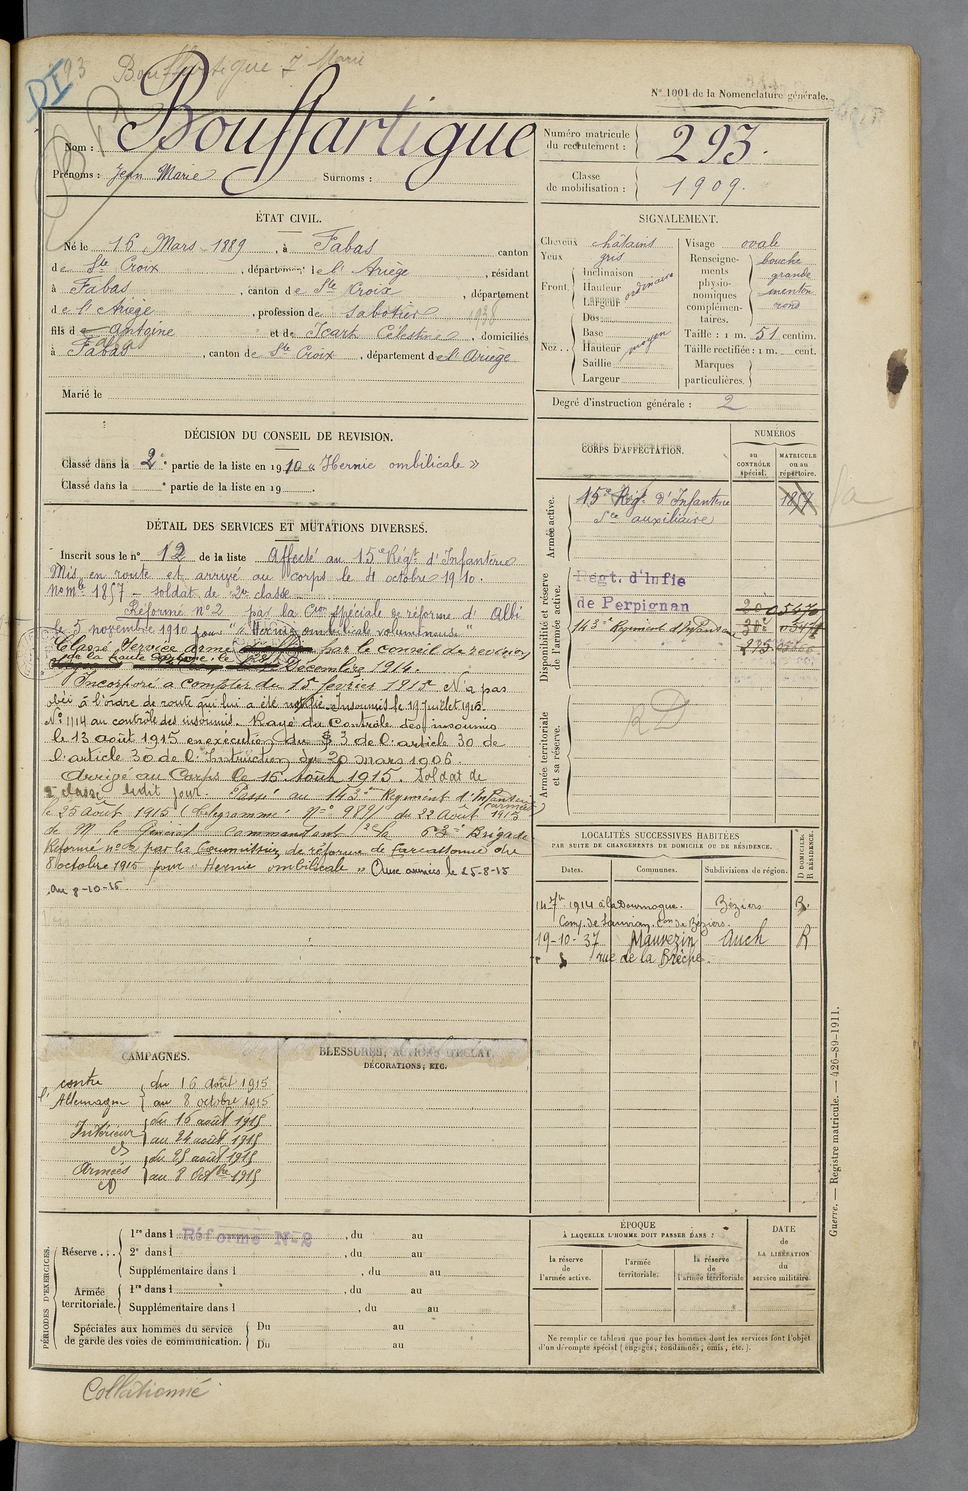 Bouffartigue J Marie
DI
N° 1001 de la Nomenclature générale.
Nom : Bouffartigue
Prénoms : Jean Marie Surnoms :
Numéro matricule du recrutement : 293.
Classe de mobilisation : 1909.
ÉTAT CIVIL.
Né le 16 Mars 1889, à Fabas canton
de Ste Croix, département de l'Ariège, résidant
à Fabas, canton de Ste Croix, département
de l'Ariège, profession de sabotier 1936
fils de Antoine et de Icart Célestine, domiciliés
à Fabas, canton de Ste Croix, département de l'Ariège
Marié le
SIGNALEMENT.
Cheveux châtains
Yeux gris
Front. Inclinaison
Hauteur ordinaire
Largeur
Nez.. Dos
Base
Hauteur moyen
Saillie
Largeur
Visage ovale
Renseignements physionomiques complémentaires. bouche
grande
menton
rond
Taille : 1 m. 51 centim.
Taille rectifiée : 1 m. cent.
Marques particulières.
Degré d'instruction générale : 2
DÉCISION DU CONSEIL DE REVISION.
Classé dans la 2e partie de la liste en 1910 « Hernie ombilicale »
Classé dans la e partie de la liste en 19 .
DÉTAIL DES SERVICES ET MUTATIONS DIVERSES.
Inscrit sous le n° 12 de la liste Affecté au 15e Régt d'Infanterie
Mis en route et arrivé au corps le 4 octobre 1910.
n° mle 1857 – soldat de 2e classe
Réformé n°2 par la Con spéciale de réforme d'Albi
le 5 novembre 1910 pour "Hernie ombilicale volumineuse"
Classé Service armé par le conseil de revision
de la Haute Garonne, le Décembre 1914.
Incorporé à compter du 15 février 1915. N'a pas
obéi à l'ordre de route qui lui a été notifié. Insoumis le 19 juillet 1915.
N° 1114 au contrôle des insoumis. Rayé du Contrôle des insoumis
le 13 août 1915 en exécution du § 3 de l'article 30 de
l'article 30 de l'Instruction du 20 mars 1906.
Arrivé au Corps le 16 Août 1915. Soldat de
2e classe ledit jour. Passé au 143me Régiment d'Infanterie
le 25 août 1915 (Télégramme N° 989/ du 22 Août 1915
de M. le Général Commandant la 63me Brigade
Réformé n° 2 par la Commission de réforme de Carcassonne du
8 octobre 1915 pour "Hernie ombilicale" Aux armées le 25-8-15
au 8-10-15.
CORPS D'AFFECTATION.
NUMÉROS
au CONTRÔLE spécial.
MATRICULE ou au répertoire.
Armée active.
15e Régt d'Infanterie 1857
Sce auxiliaire
Disponibilité et réserve de l'armée active.
Régt. d'Infie
de Perpignan
143e Régiment d'Infanterie
Armée territoriale et sa réserve.
RD
LOCALITÉS SUCCESSIVES HABITÉES
PAR SUITE DE CHANGEMENTS DE DOMICILE OU DE RÉSIDENCE.
Dates. Communes. Subdivisions de région. D DOMICILE. R RÉSIDENCE.
14 7bre 1914 à la Béziers R.
Com. de Sauvian. Con de Béziers.
19-10-37 Mauvezin Auch R
rue de la Brèche.
CAMPAGNES.
contre l'Allemagne du 16 août 1915
au 8 octobre 1915
Intérieur du 16 août 1915
au 24 août 1915
Armées du 25 août 1915
au 8 Octbre 1915
BLESSURES, ACTIONS D'ÉCLAT,
DÉCORATIONS, ETC.
PÉRIODES D'EXERCICES.
Réserve... 1re dans l Réformé N-2, du au
2e dans l, du au
Supplémentaire dans l, du au
Armée territoriale. 1re dans l, du au
Supplémentaire dans l, du au
Spéciales aux hommes du service de garde des voies de communication. Du au
Du au
ÉPOQUE
À LAQUELLE L'HOMME DOIT PASSER DANS :
la réserve de l'armée active.
l'armée territoriale.
la réserve de l'armée territoriale
DATE de LA LIBÉRATION du service militaire.
Ne remplir ce tableau que pour les hommes dont les services font l'objet
d'un décompte spécial (engagés, condamnés, omis, etc.).
Guerre. — Registre matricule. — 426-89-1911.
Collationné